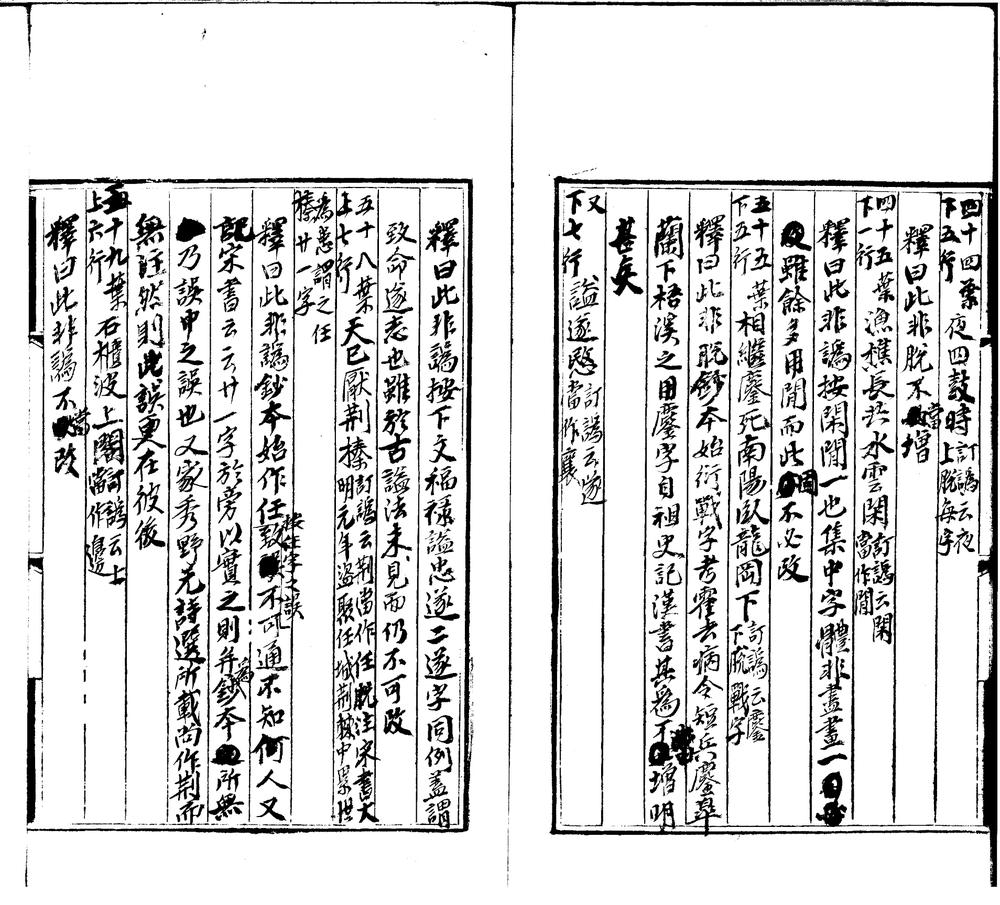 四十四葉下五行 夜四鼓時 訂譌云夜上脫每字
釋曰此非脫不當增
四十五葉下一行 漁樵長共水雲閑 訂譌云閑當作閒
釋曰此非譌按閑閒一也集中字體非盡畫一
雖餘多用閒而此固不必改
五十五葉下五行 相繼鏖死南陽臥龍岡下 訂譌云鏖下脫戰字
釋曰此非脫鈔本始衍戰字考霍去病合短兵鏖皋
蘭下梧溪之用鏖字自祖史記漢書其爲不當增明
甚矣
又下七行 謚遂愍 訂譌云遂當作襄
釋曰此非譌按下文福祿謚忠遂二遂字同例蓋謂
致命遂志也雖於古謚法未見而仍不可改
五十八葉上七行 天已厭荆榛 訂譌云荆當作任脫注宋書大明元年盜聚任城荆榛中累世
為患謂之任榛廿一字
釋曰此非譌鈔本始作任致不可通不知何人又
按注字之誤
記宋書云云廿一字於旁以實之則并爲鈔本所無
乃誤中之誤也又家秀野元詩選所載尚作荆而
無注然則此誤更在彼後
五十九葉上六行 石櫃波上閣 訂譌云上當作邊
釋曰此非譌不當改